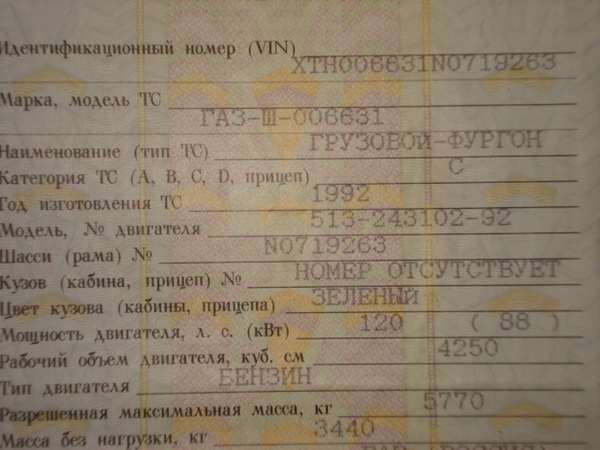 Идентификационный номер (VIN) XTH006631N0719263
Марка, модель ТС ГАЗ-Ш-006631
Наименование (тип ТС) ГРУЗОВОЙ-ФУРГОН
Категория ТС (А, В, С, D, прицеп) С
Год изготовления ТС 1992
Модель, № двигателя 513-243102-92
Шасси (рама) № N0719263
Кузов (кабина, прицеп) № НОМЕР ОТСУТСТВУЕТ
Цвет кузова (кабины, прицепа) ЗЕЛЕНЫЙ
Мощность двигателя, л. с. (кВт) 120 ( 88 )
Рабочий объем двигателя, куб. см 4250
Тип двигателя БЕНЗИН
Разрешенная максимальная масса, кг 5770
Масса без нагрузки, кг 3440